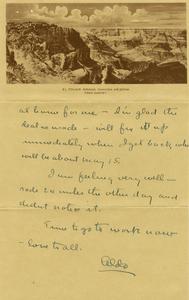 EL TOVAR
at home for me — I'm glad the
deal is made — will fix it up
immediately when I get back, who
will be about May 15.
I am feeling very well —
rode 20 miles the other day and
didnt notice it.
Time to go to work now
- love to all.
Aldo